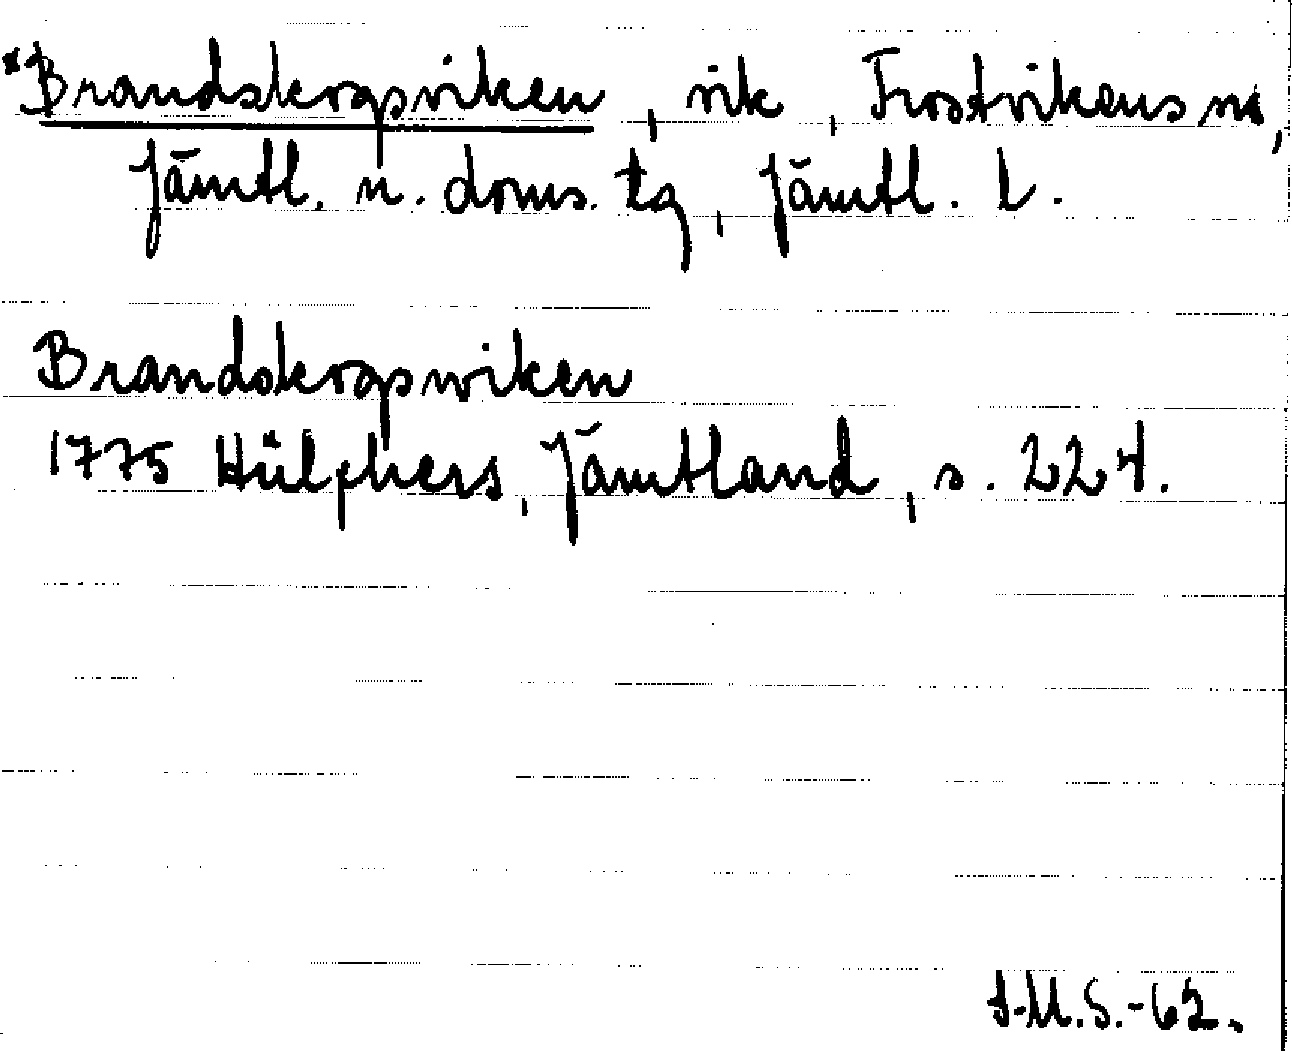 *Brandskogsviken, vik, Frostvikens sn,
Jämtl. n. doms. tg, Jämtl. l.
Brandskogswiken
1775 Hülphers, Jämtland, s. 224.
I-M.S.-62.